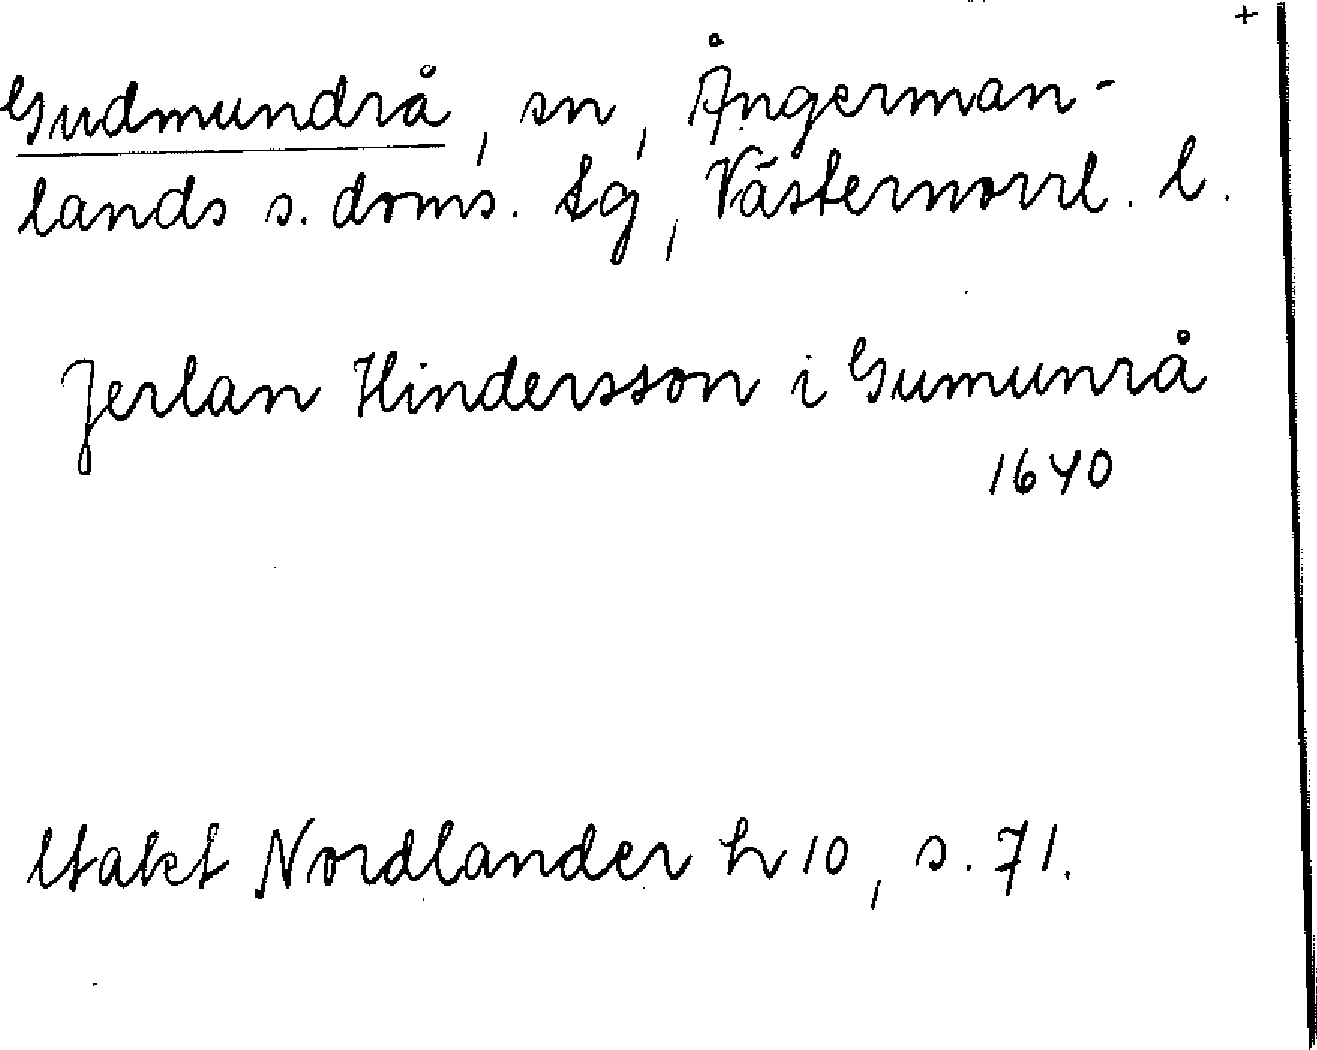 +
Gudmundrå, sn, Ångerman-
lands s. doms. tg, Västernorrl. l.
Jerlan Hindersson i Gumunrå
1640
Utakt Nordlander h 10, s. 71.